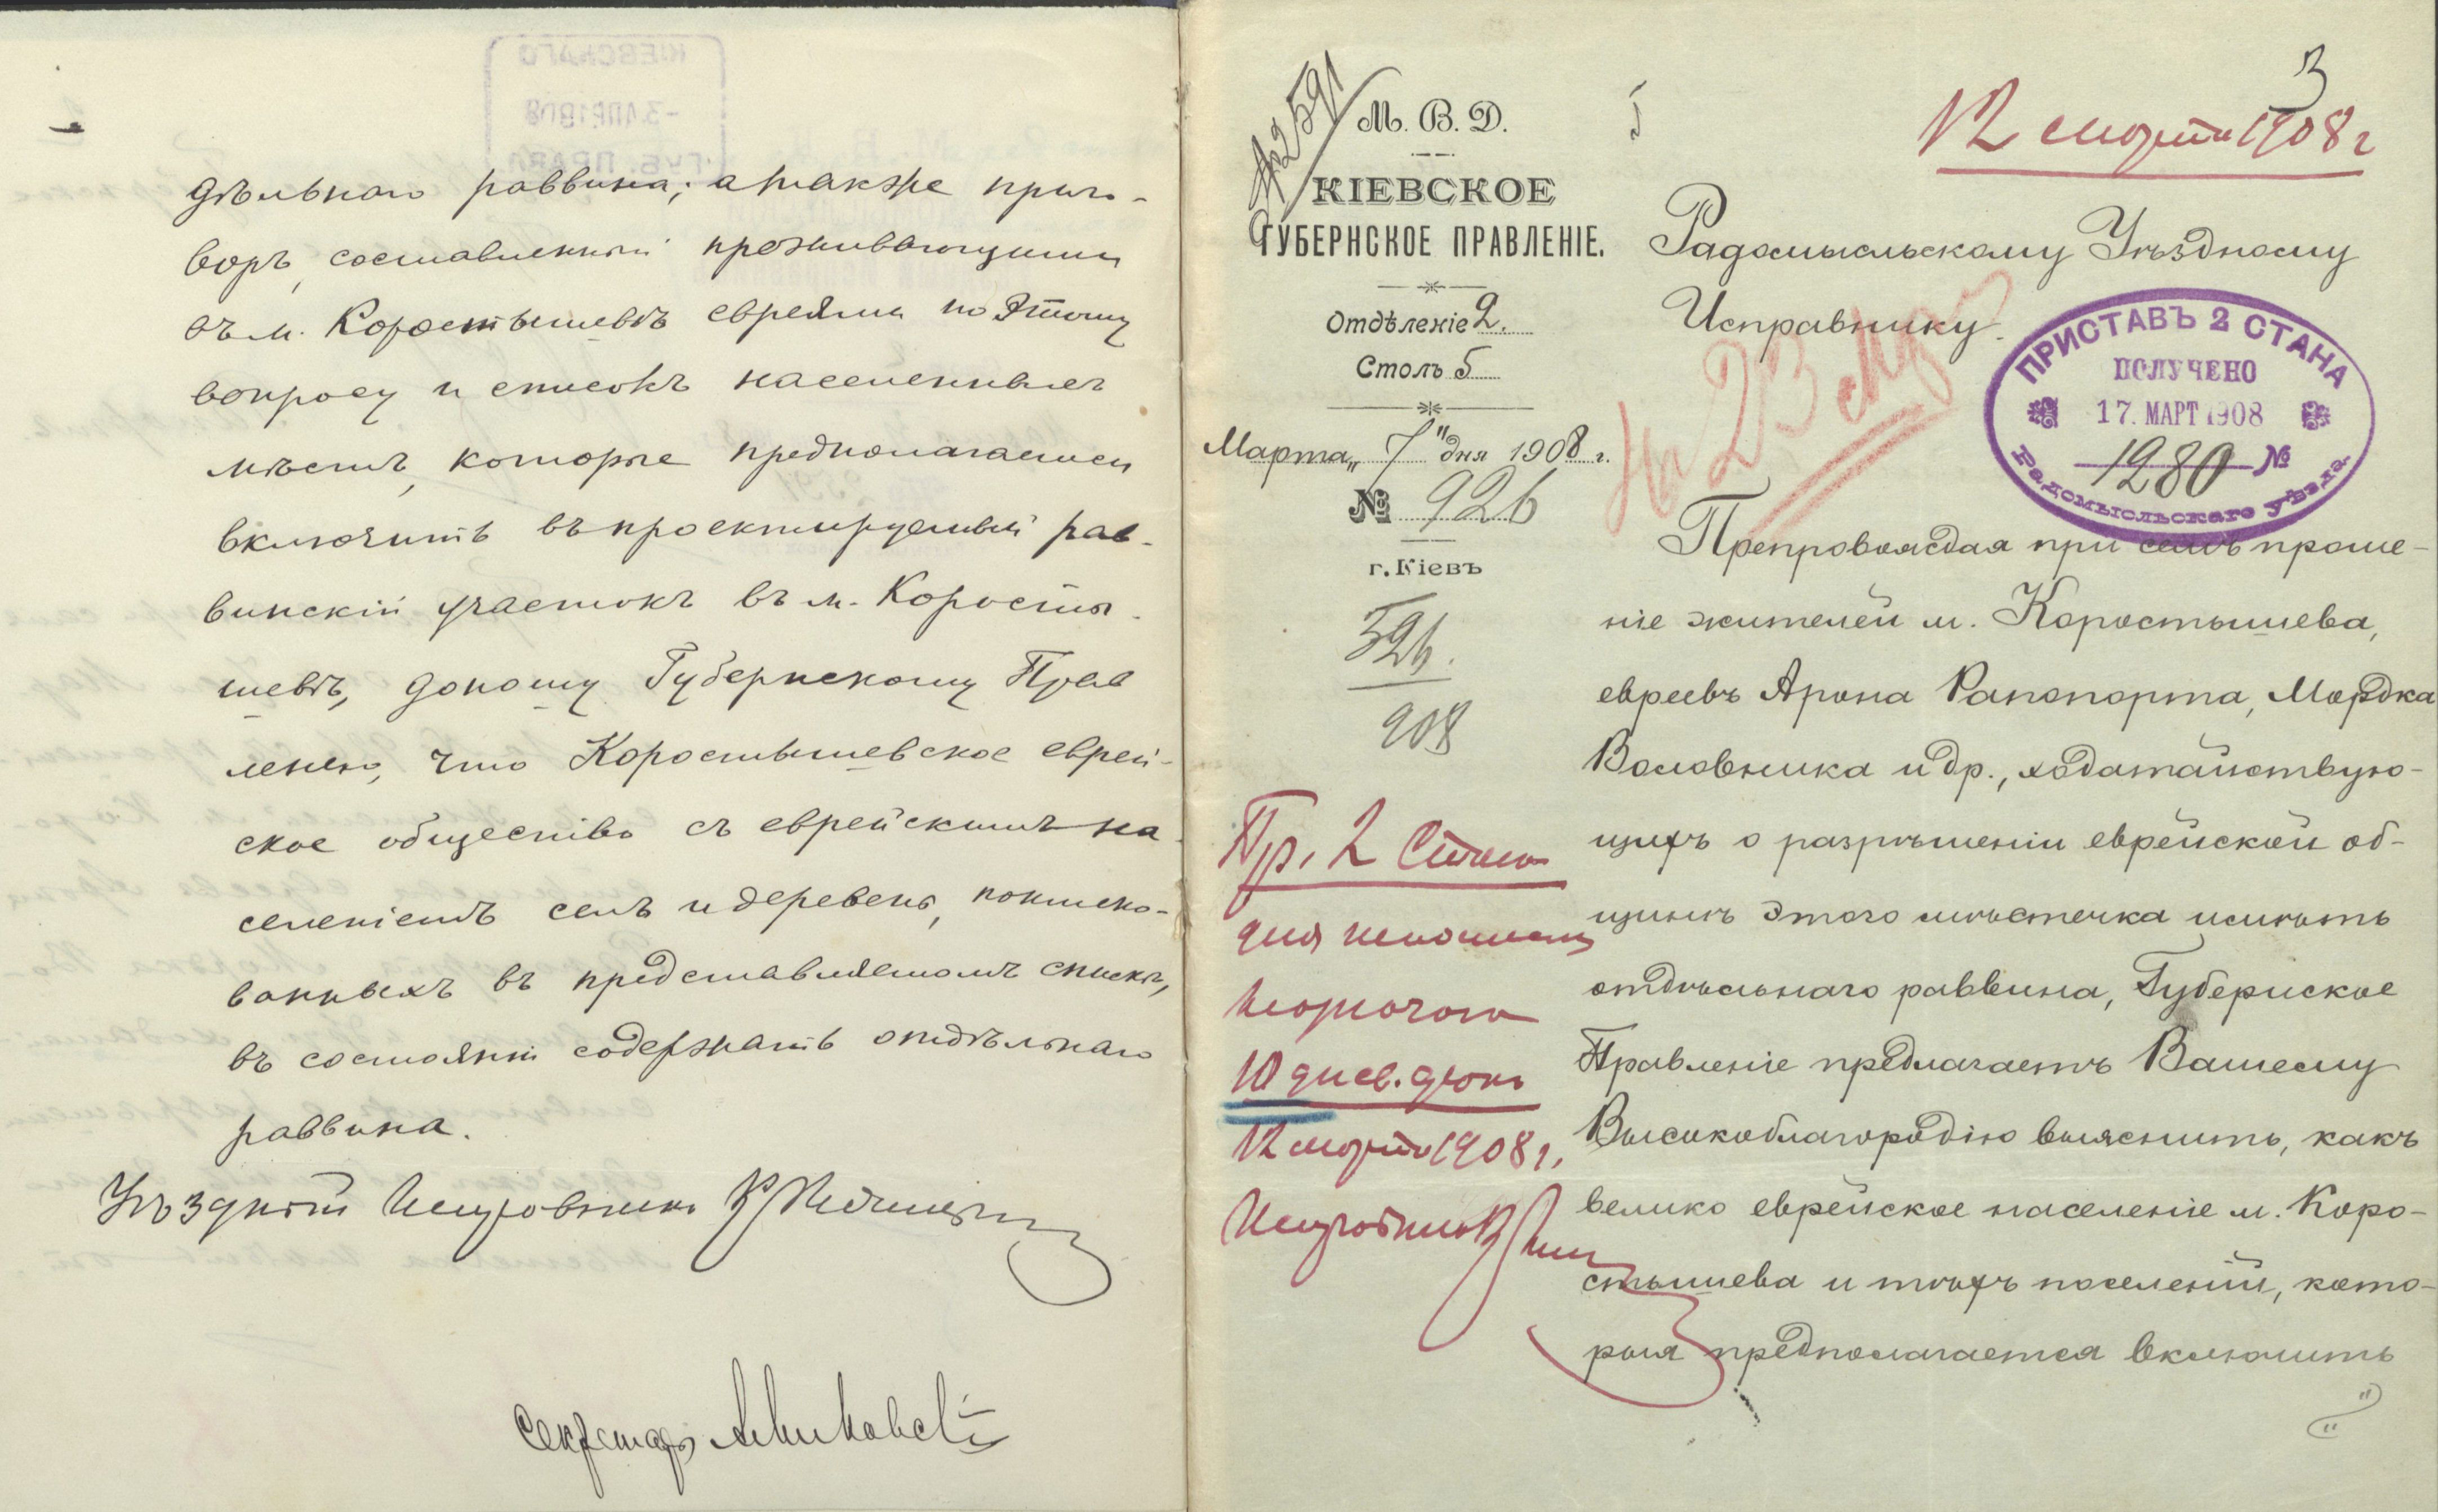 дѣльнаго раввина; а также приго-
воръ, составленный проживающими
въ м. Коростышевѣ евреями по этому
вопросу и списокъ населенныхъ
мѣстъ, которые предполагается
включить въ проектируемый рав-
винскій участокъ въ м. Коросты-
шевѣ, доношу Губернскому Прав
ленію, что Коростышевское еврей-
ское общество съ еврейскимъ на
селеніемъ селъ и деревень, поимено-
ванныхъ въ представляемомъ спискѣ,
въ состояніи содержать отдѣльнаго
раввина.
Уѣздный Исправникъ
Секретарь
3
12 марта 1908 г
№ 2591
М. В. Д.
КІЕВСКОЕ
ГУБЕРНСКОЕ ПРАВЛЕНІЕ.
Отдѣленіе 2.
Столъ 5
Марта „7" дня 1908 г.
№ 926
г. Кіевъ
526.
908
Пр. 2 Стана
для исполненія
10 днев. срокъ
12 марта 1908 г.
Исправникъ
Радомысльскому Уѣздному
Исправнику.
На 23 мар
ПРИСТАВЪ 2 СТАНА
ПОЛУЧЕНО
17. МАРТ 1908
1280 №
Радомысльскаго уѣзда.
Препровождая при семъ проше-
ніе жителей м. Коростышева,
евреевъ Арона Рапопорта, Мордка
Воловника и др., ходатайствую-
щихъ о разрѣшеніи еврейской об-
щинѣ этого мѣстечка имѣть
отдѣльнаго раввина, Губернское
Правленіе предлагаетъ Вашему
Высокоблагородію выяснить, какъ
велико еврейское населеніе м. Коро-
стышева и тѣхъ поселеній, кото-
рыя предполагается включить